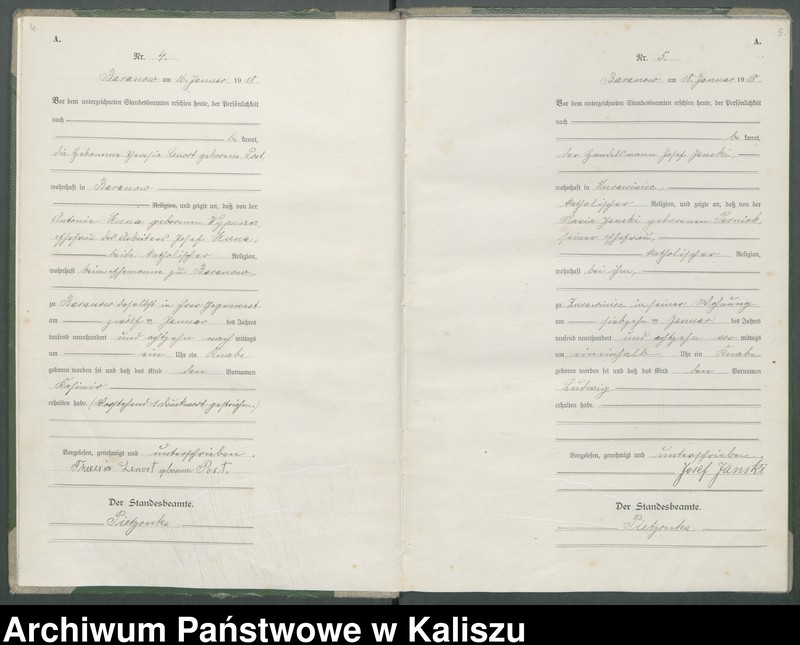 4.
A.
Nr. 4.
Baranow am 16. Januar 1918.
Vor dem unterzeichneten Standesbeamten erschien heute, der Persönlichkeit
nach
be kannt,
die Hebamme Theresia Lenort geborene Post,
wohnhaft in Baranow
Religion, und zeigte an, daß von der
Antonie Kuna geborenen
Ehefrau des Arbeiters Josef Kuna,
beide katholischer Religion,
wohnhaft beim Ehemanne zu Baranow,
zu Baranow daselbst in ihrer Gegenwart
am zwölf ten Januar des Jahres
tausend neunhundert und achtzehn nach mittags
um ein Uhr ein Knabe
geboren worden sei und daß das Kind den Vornamen
Kasimir
erhalten habe. (Vorstehend 1 Druckwort gestrichen.)
Vorgelesen, genehmigt und unterschrieben.
Theresia Lenort geborene Post.
Der Standesbeamte.
Pietzonka
5.
A.
Nr. 5.
Baranow am 18. Januar 1918.
Vor dem unterzeichneten Standesbeamten erschien heute, der Persönlichkeit
nach
be kannt,
der Handelsmann Josef Janski,
wohnhaft in Zurawiniec,
katholischer Religion, und zeigte an, daß von der
Maria Janski geborenen
seiner Ehefrau,
katholischer Religion,
wohnhaft bei ihm,
zu Zurawiniec in seiner Wohnung
am siebzehn ten Januar des Jahres
tausend neunhundert und achtzehn vor mittags
um eineinhalb Uhr ein Knabe
geboren worden sei und daß das Kind den Vornamen
Ludwig
erhalten habe.
Vorgelesen, genehmigt und unterschrieben.
Josef Janski
Der Standesbeamte.
Pietzonka
Archiwum Państwowe w Kaliszu